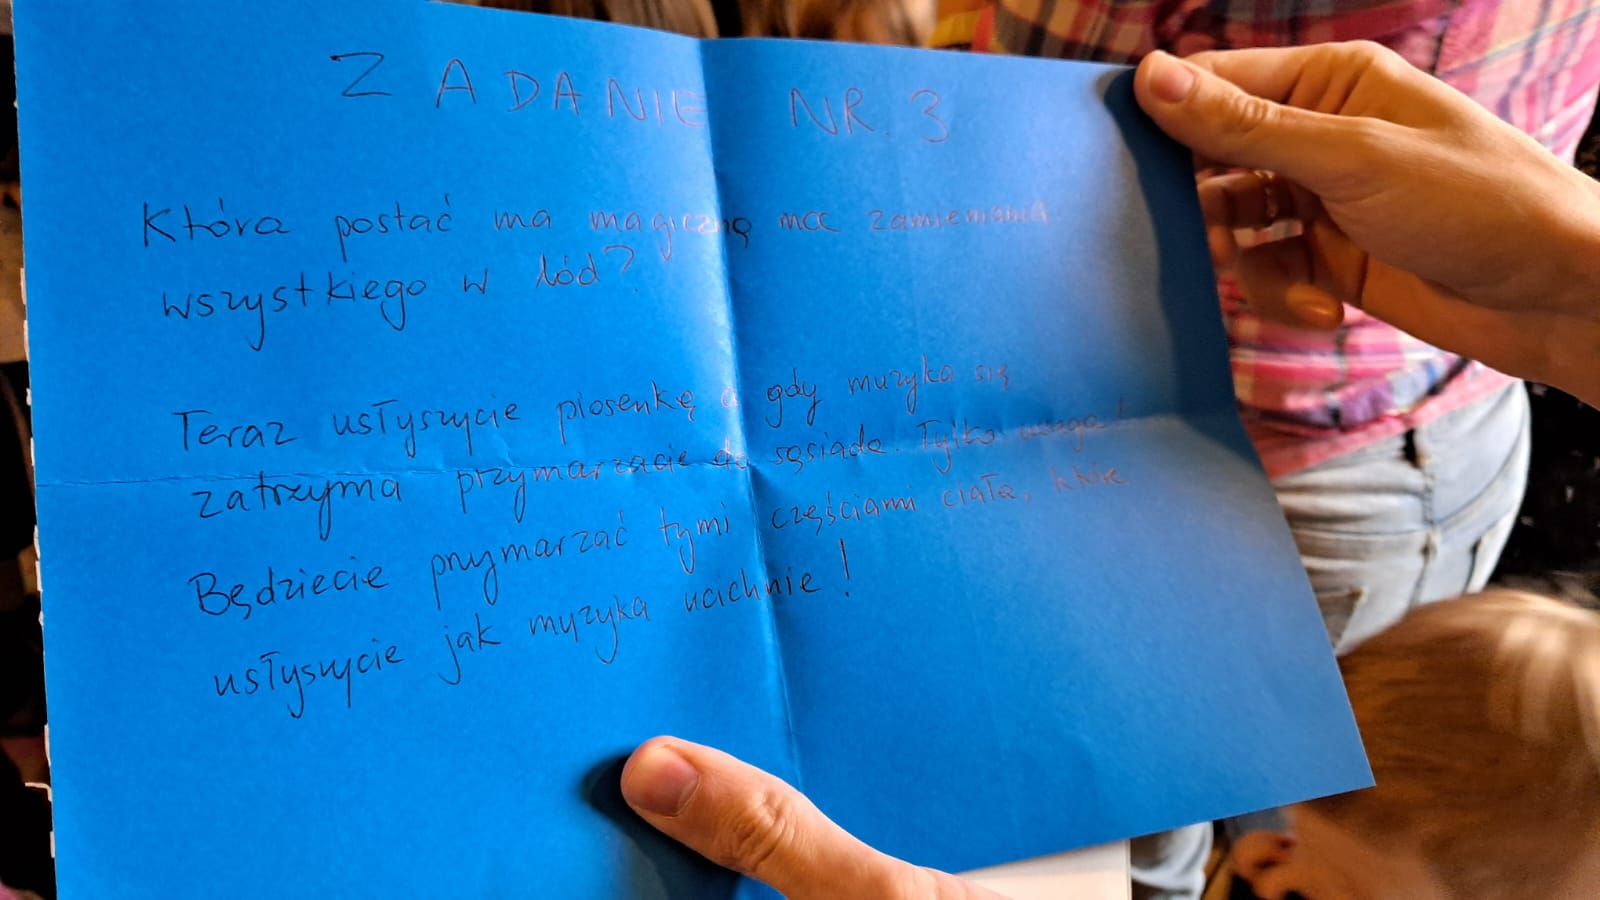 ZADANIE NR. 3
Która postać ma magiczną moc zamieniania
wszystkiego w lód?
Teraz usłyszycie piosenkę a gdy muzyka się
zatrzyma przymarzacie do sąsiada. Tylko uwaga!
Będziecie przymarzać tymi częściami ciała, które
usłyszycie jak muzyka ucichnie!